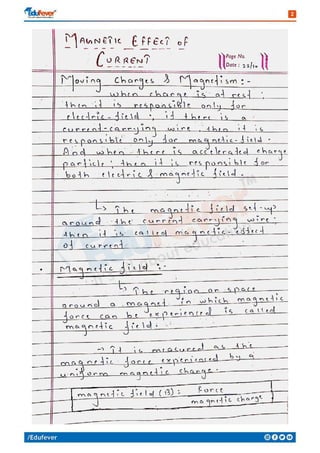 Edufever
2
MAGNETIC EFFECT of
CURRENT
Page No.
Date: 22/10
Moving Charges & Magnetism:-
when charge is at rest;
then it is responsible only for
electric-field; if there is a
current-carrying wire, then it is
responsible only for magnetic-field.
And when there is accelerated charge
particle; then it is responsible for
both electric & magnetic field.
↳ The magnetic field set-up
around the current carrying wire;
then it is called magnetic-effect
of current
• Magnetic field:-
↳ The region or space
around a magnet in which magnetic
force can be experienced is called
magnetic field.
→ It is measured as the
magnetic force experienced by a
uniform magnetic charge.
magnetic field (B): Force
magnetic charge
/Edufever